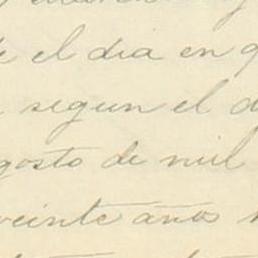 el dia en
segun el
agosto de mil
veinte años